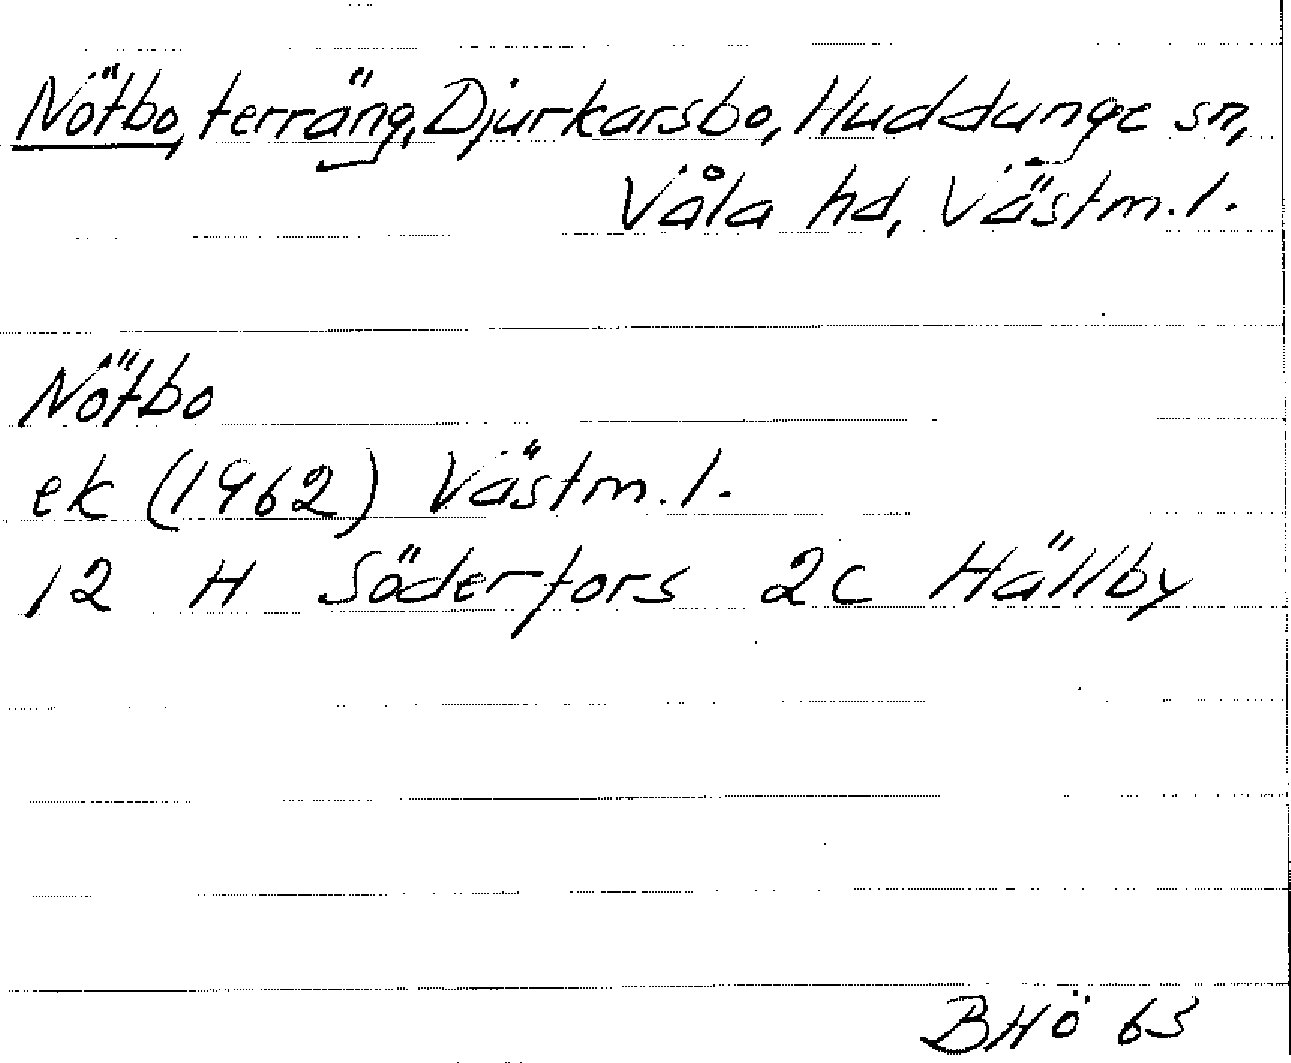 Nötbo, terräng, Djurkarsbo, Huddunge sn,
Våla hd, Västm. l.
Nötbo
ek (1962) Västm. l.
12 H Söderfors 2c Hällby
BHÖ 63